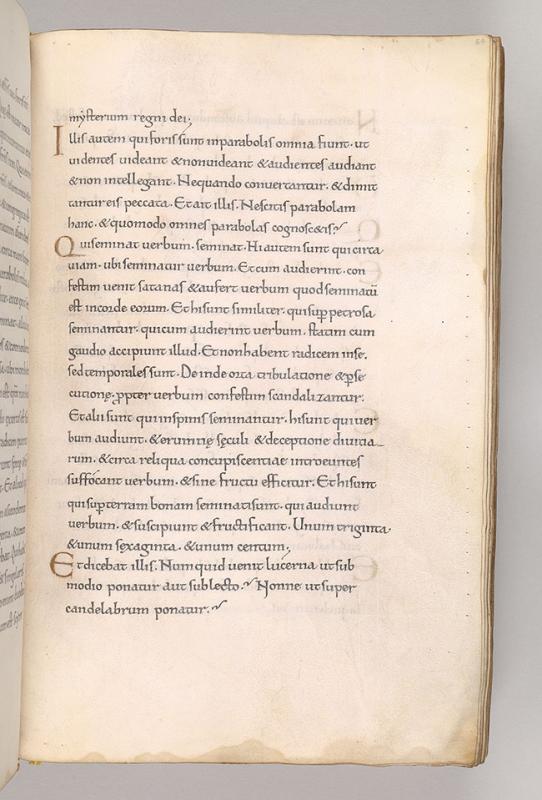 mysterum regni dei;
Illis autem qui foris sunt inparabolis omnia fiunt. ut
uidentes uideant & nonuideant & audientes audiant
& non intellegant. Nequando conuertantur. & dimit
tantur eis peccata. Et ait illis. Nescitis parabolam
hanc. & quomodo omnes parabolas cognosc&is?
Qui seminat uerbum. seminat. Hi autem sunt qui circa
uiam. ubi seminatur uerbum. Et cum audierint. con
festim uenit satanas & aufert uerbum quod seminatū
est incorde eorum. Et hi sunt similiter. qui sup petrosa
seminantur. qui cum audierint uerbum. statim cum
gaudio accipiunt illud. Et non habent radicem inse.
sed temporales sunt. De inde orta tribulatione & pse
cutionę. ppter uerbum confestim scandalizantur.
Et alii sunt qui inspinis seminantur. hi sunt qui uer
bum audiunt. & erumnę sęculi & deceptione diuitia
rum. & circa reliqua concupiscentiae introeuntes
suffocant uerbum. & sine fructu efficitur. Et hi sunt
qui sup terram bonam seminati sunt. qui audiunt
uerbum. & suscipiunt & fructificant. Unum triginta
& unum sexaginta. & unum centum;
Et dicebat illis. Numquid uenit lucerna ut sub
modio ponatur aut sub lecto? Nonne ut super
candelabrum ponatur?